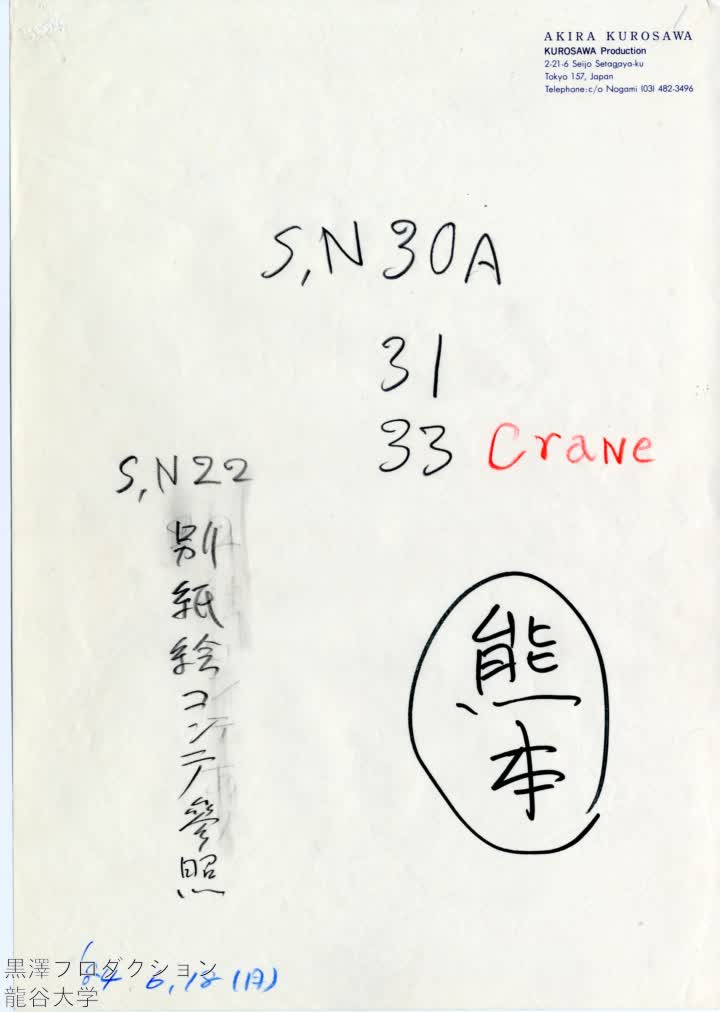 AKIRA KUROSAWA
KUROSAWA Production
2-21-6 Seijo Setagaya-ku
Tokyo 157, Japan
Telephone:c/o Nogami (03) 482-3496
S,N30A
31
33 CraNe
S,N22
別紙絵コンテ参照
熊本
'84. 6,18(月)
黒澤プロダクション
龍谷大学